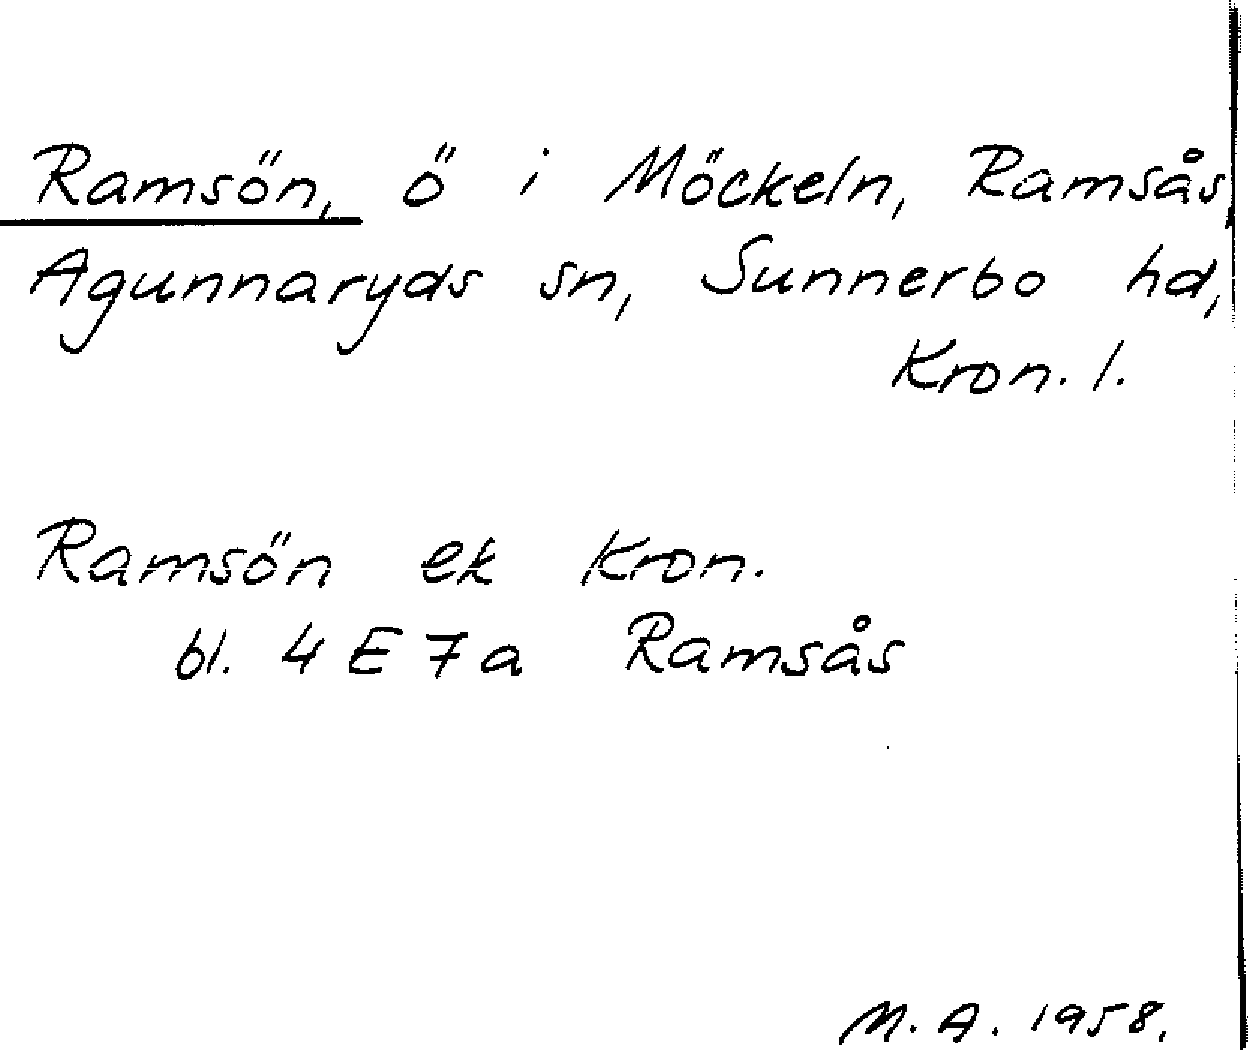 Ramsön, ö i Möckeln, Ramsås,
Agunnaryds sn, Sunnerbo hd,
Kron. l.
Ramsön ek Kron.
bl. 4 E 7 a Ramsås
M. A. 1958.